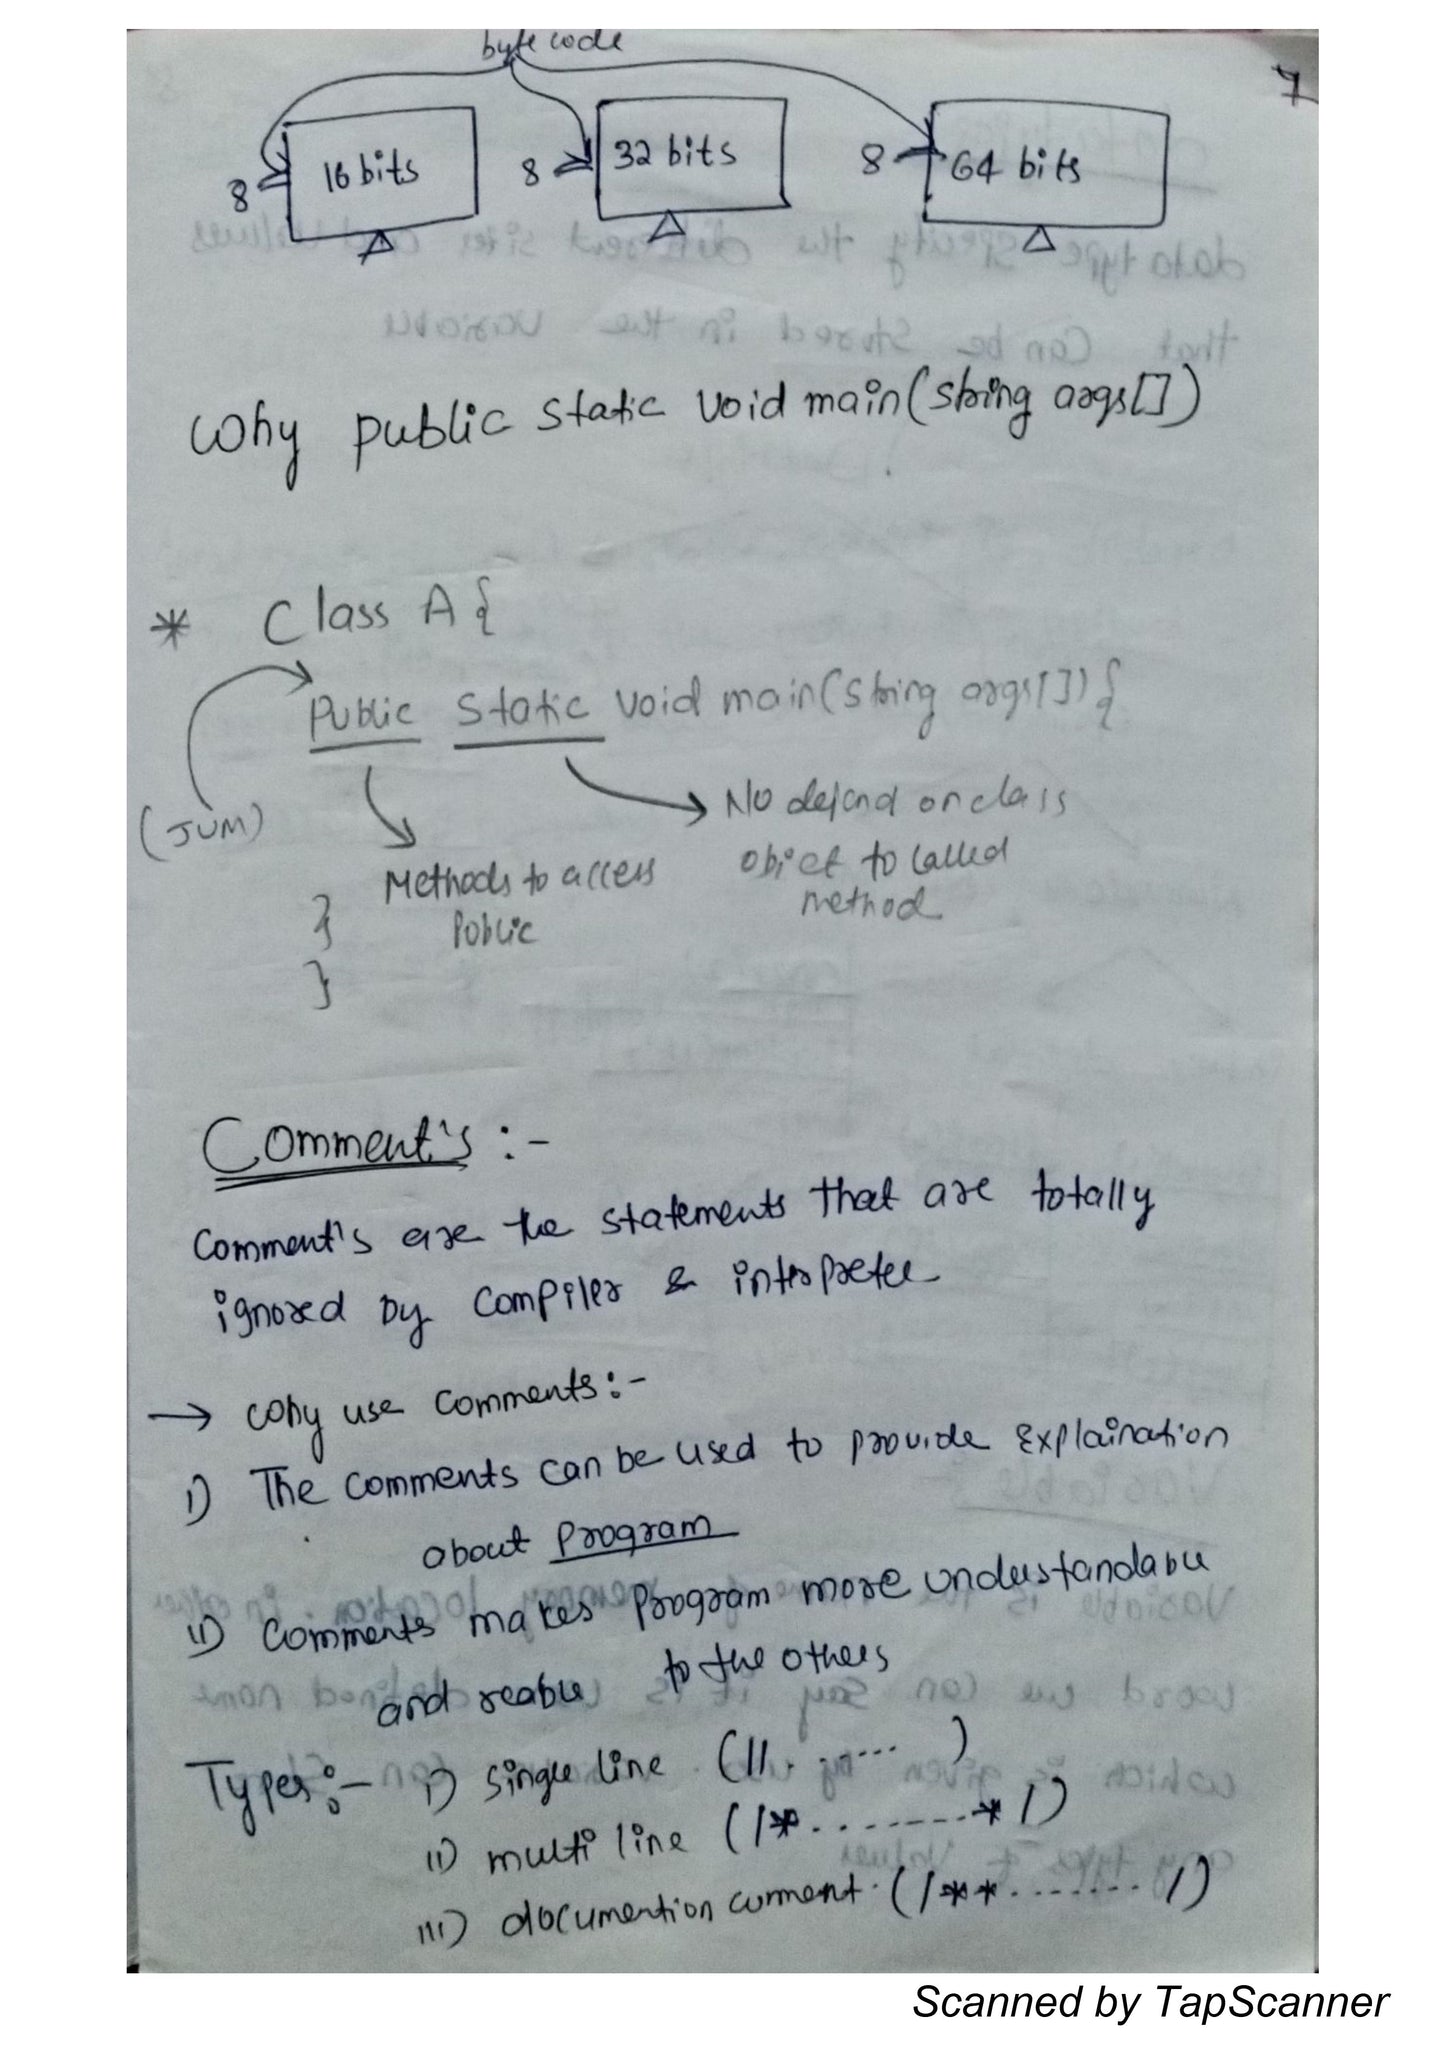 byte code
7
8 16 bits 8 32 bits 8 64 bits
Why public static void main(string args[])
* Class A{
Public static void main(string args[]){
(JVM)
No depend on class
object to called
method
Methods to access
Public
}
}
Comment's :-
Comment's are the statements that are totally
ignored by Compiler & interpreter
→ Why use comments:-
i) The comments can be used to provide explaination
about program
ii) Comments makes program more understandable
and reable to the others
Types:- i) single line (//. ..... )
ii) multi line (/*.........*/)
iii) documention comment. (/**......../)
Scanned by TapScanner